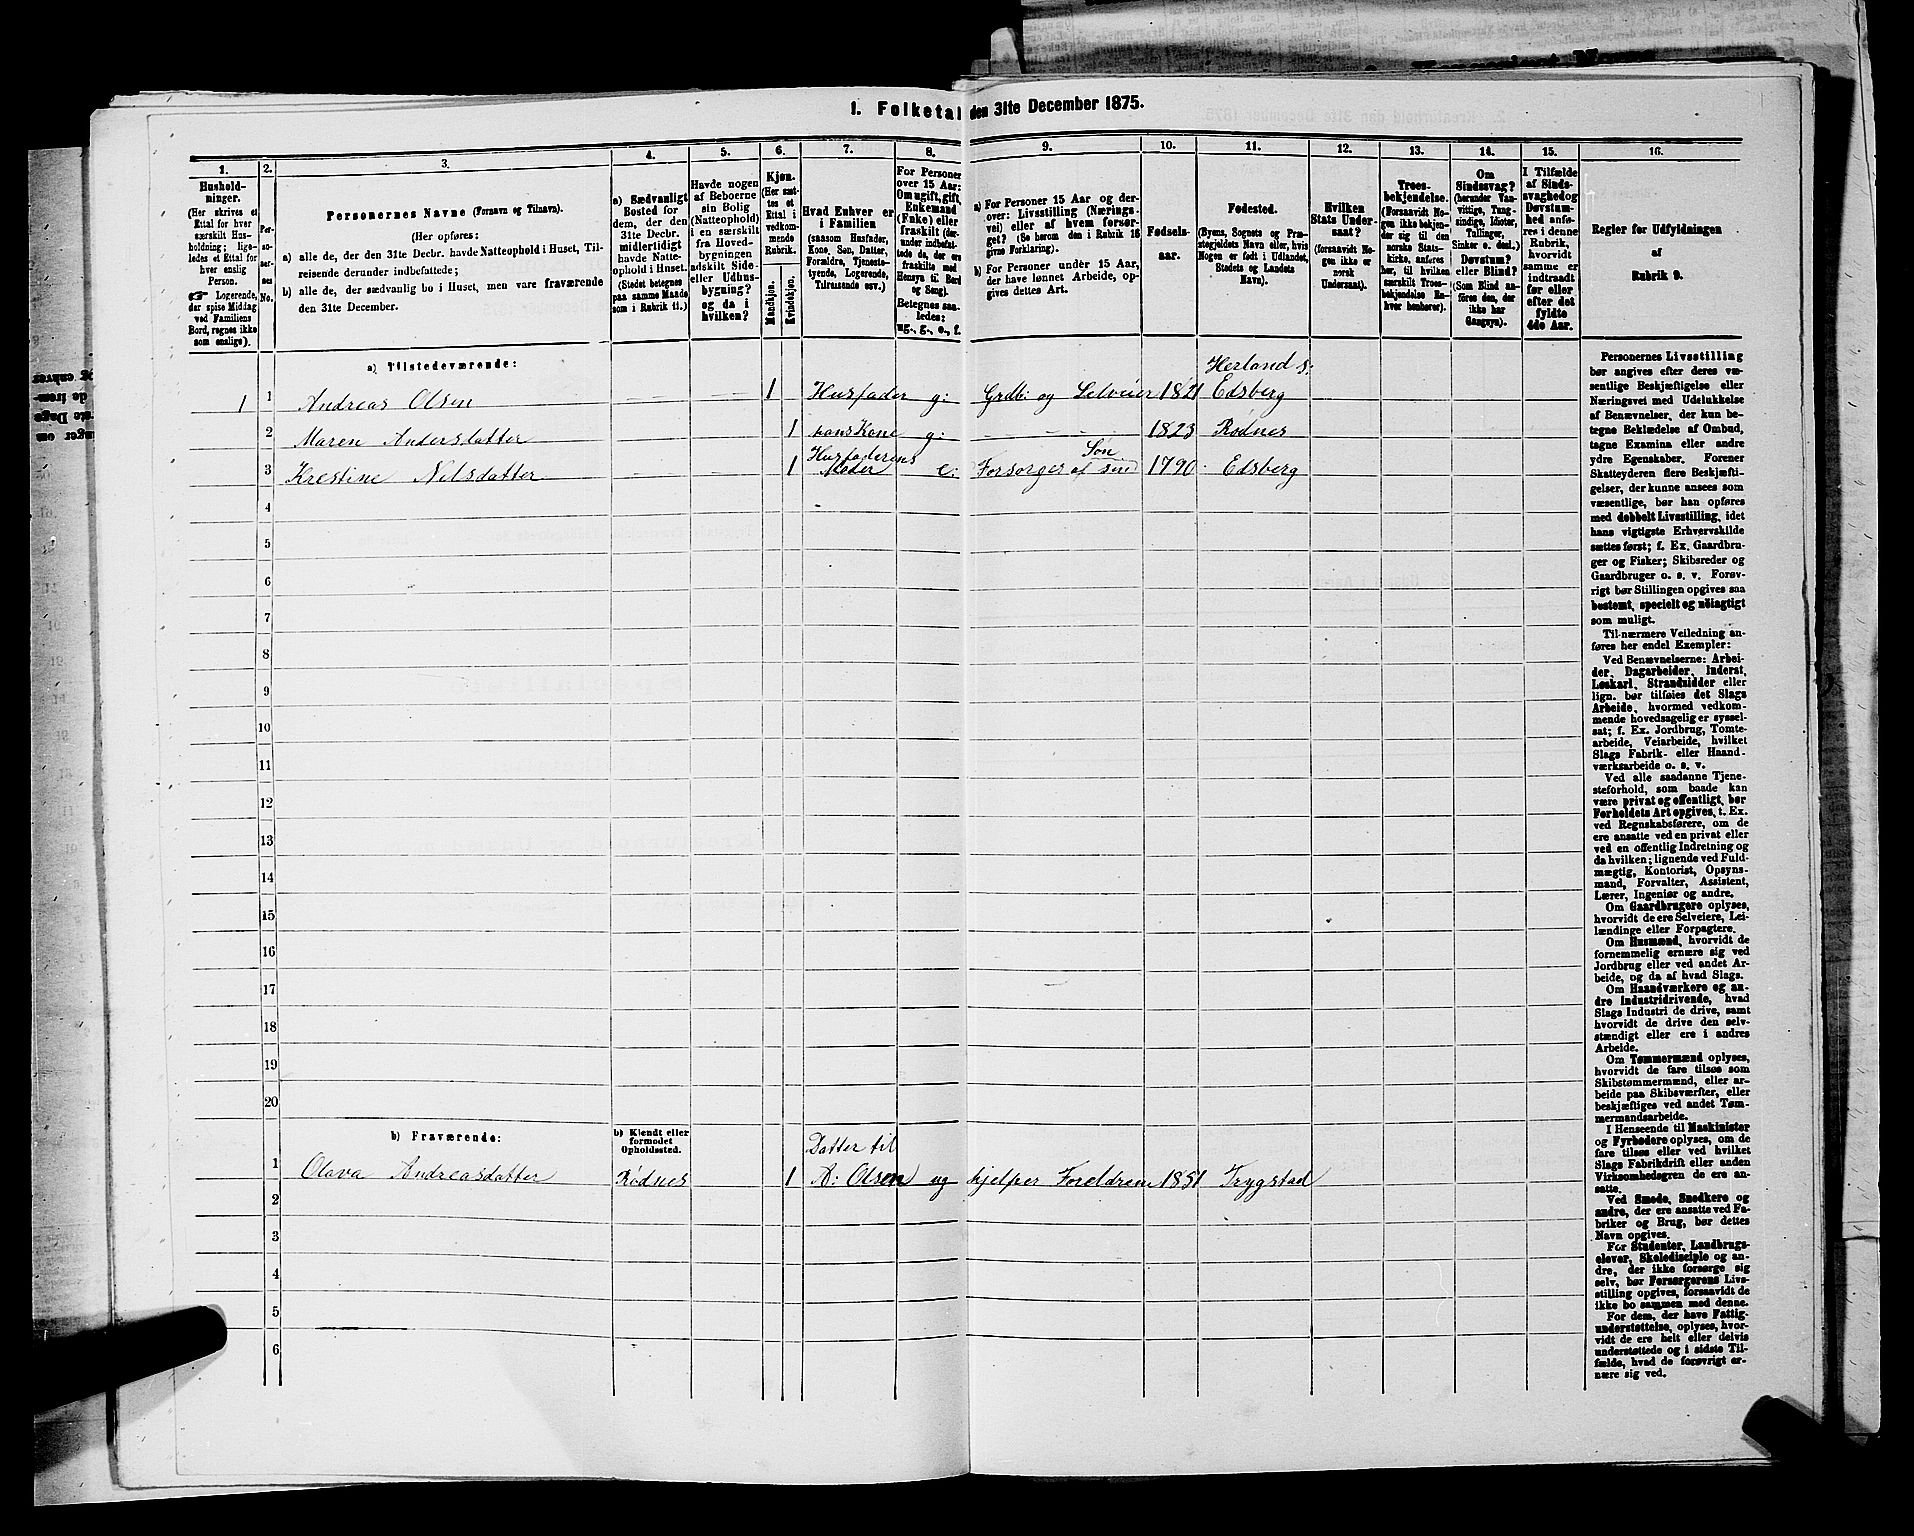 1. Folketal den 31te December 1875.
1. 2. 3. 4. 5. 6. 7. 8. 9. 10. 11. 12. 13. 14. 15. 16.
Hushold-
ninger.
(Her skrives et
Ettal for hver
særskilt Hus-
holdning; lige-
ledes et Ettal for
hver enslig
Person.
☞ Logerende,
der spise Middag
ved Familiens
Bord, regnes ikke
som enslige).
Per-
so-
ner-
nes
No.
Personernes Navne (Fornavn og Tilnavn).
(Her opføres:
a) alle de, der den 31te Decbr. havde Natteophold i Huset, Til-
reisende derunder indbefattede;
b) alle de, der sædvanlig bo i Huset, men vare fraværende
den 31te December.
a) Sædvanligt
Bosted for
dem, der den
31te Decbr.
midlertidigt
havde Natte-
ophold i Huset.
(Stedet betegnes
paa samme Maade
som i Rubrik 11.)
Havde nogen
af Beboerne
sin Bolig
(Natteophold)
i en særskilt
fra Hoved-
bygningen
adskilt Side-
eller Udhus-
bygning?
og da i
hvilken?
Kjøn.
(Her sæt-
tes et
Ettal i
vedkom-
mende
Rubrik.
Mandkjøn.
Kvindekjøn.
Hvad Enhver er
i Familien
(saasom Husfader,
Kone, Søn, Datter,
Forældre, Tjeneste-
tyende, Logerende,
Tilreisende osv.)
For Personer
over 15 Aar:
Om ugift, gift,
Enkemand
(Enke) eller
fraskilt (der-
under indbefat-
tede de, der ere
fraskilte med
Hensyn til Bord
og Seng).
Betegnes saa-
ledes:
ug., g., e., f.
a) For Personer 15 Aar og der-
over: Livsstilling (Nærings-
vei) eller af hvem forsør-
get? (Se herom den i Rubrik 16
givne Forklaring).
b) For Personer under 15 Aar,
der have lønnet Arbeide, op-
gives dettes Art.
Fødsels-
aar.
Fødested.
(Byens, Sognets og Præ-
stegjeldets Navn eller, hvis
Nogen er født i Udlandet,
Stedets og Landets
Navn).
Hvilken
Stats Under-
saat?
(forsaavidt No-
gen ikke er
norsk
Undersaat).
Troes-
bekjendelse.
(Forsaavidt No-
gen ikke bekjen-
der sig til den
norske Stats-
kirke, anføres
her, til hvilken
særskilt Troes-
bekjendelse En-
hver henhører).
Om
Sindssvag?
(herunder Van-
vittige, Tung-
sindige, Idioter,
Tullinger,
Sinker o. desl.)
Døvstum?
eller Blind?
(Som Blind an-
føres den, der
ikke har
Gangsyn).
I Tilfælde
af Sinds-
svaghed og
Døvstum-
hed anfø-
res i denne
Rubrik,
hvorvidt
samme er
indtraadt
før eller
efter det
fyldte
4de Aar.
Regler for Udfyldningen
af
Rubrik 9.
a) Tilstedeværende:
1 1 Andreas Olsen 1 Husfader g: Grdbr og Selveier 1821 Herland s: Edsberg
2 Maren Andersdatter 1 hans Kone g: 1823 Rødnes
3 Krestine Nilsdatter 1 Husfaderens Moder e: Forsorges af sin Søn 1790 Edsberg
4
5
6
7
8
9
10
11
12
13
14
15
16
17
18
19
20
b) Fraværende:
b) Kjendt eller
formodet
Opholdssted.
1 Olava Andreasdatter Rødnes 1 Datter til A: Olsen ug hjelper Foreldrene 1851 Trygstad
2
3
4
5
6
Personernes Livsstilling
bør angives efter deres væ-
sentlige Beskjæftigelse eller
Næringsvei med Udelukkelse
af Benævnelser, der kun be-
tegne Beklædelse af Ombud,
tagne Examina eller andre
ydre Egenskaber. Forener
Skatteyderen flere Beskjæfti-
gelser, der kunne ansees som
væsentlige, bør han opføres
med dobbelt Livsstilling, idet
hans vigtigste Erhvervskilde
sættes først; f. Ex. Gaardbru-
ger og Fisker; Skibsreder og
Gaardbruger o. s. v. Forøv-
rigt bør Stillingen opgives saa
bestemt, specielt og nøiagtigt
som muligt.
Til nærmere Veiledning an-
føres her endel Exempler:
Ved Benævnelserne: Arbei-
der, Dagarbeider, Inderst,
Løskarl, Strandsidder eller
lign. bør tilføies det Slags
Arbeide, hvormed vedkom-
mende hovedsagelig er syssel-
sat; f. Ex. Jordbrug, Tomte-
arbeide, Veiarbeide, hvilket
Slags Fabrik- eller Haand-
værksarbeide o. s. v.
Ved alle saadanne Tjene-
steforhold, som baade kan
være privat og offentligt, bør
Forholdets Art opgives, t. Ex.
ved Regnskabsførere, om de
ere ansatte ved en privat eller
ved en offentlig Indretning og
da hvilken; lignende ved Fuld-
mægtig, Kontorist, Opsyns-
mand, Forvalter, Assistent,
Lærer, Ingeniør og andre.
Om Gaardbrugere oplyses,
hvorvidt de ere Selveiere, Lei-
lændinge eller Forpagtere.
Om Husmænd, hvorvidt de
fornemmelig ernære sig ved
Jordbrug eller ved andet Ar-
beide, og da af hvad Slags.
Om Haandværkere og an-
dre Industridrivende, hvad
Slags Industri de drive, samt
hvorvidt de drive den selv-
stændigt eller ere i andres
Arbeide.
Om Tømmermænd oplyses,
hvorvidt de fare tilsøs som
Skibstømmermænd, eller ar-
beide paa Skibsværfter, eller
beskjæftiges ved andet Tøm-
mermandsarbeide.
I Henseende til Maskinister
og Fyrbødere oplyses, om de
fare tilsøs eller ved hvilket
Slags Fabrikdrift eller anden
Virksomhedsgren de ere an-
satte.
Ved Smede, Snedkere og
andre, der ere ansatte ved Fa-
briker og Brug, bør dettes
Navn opgives.
For Studenter, Landbrugs-
elever, Skoledisciple og an-
dre, der ikke forsørge sig
selv, bør Forsørgerens Livs-
stilling opgives, forsaavidt de
ikke bo sammen med denne.
For dem, der have Fattig-
understøttelse, oplyses, hvor-
vidt de ere helt eller delvis
understøttede og i sidste Til-
fælde, hvad de forøvrigt er-
nære sig ved.